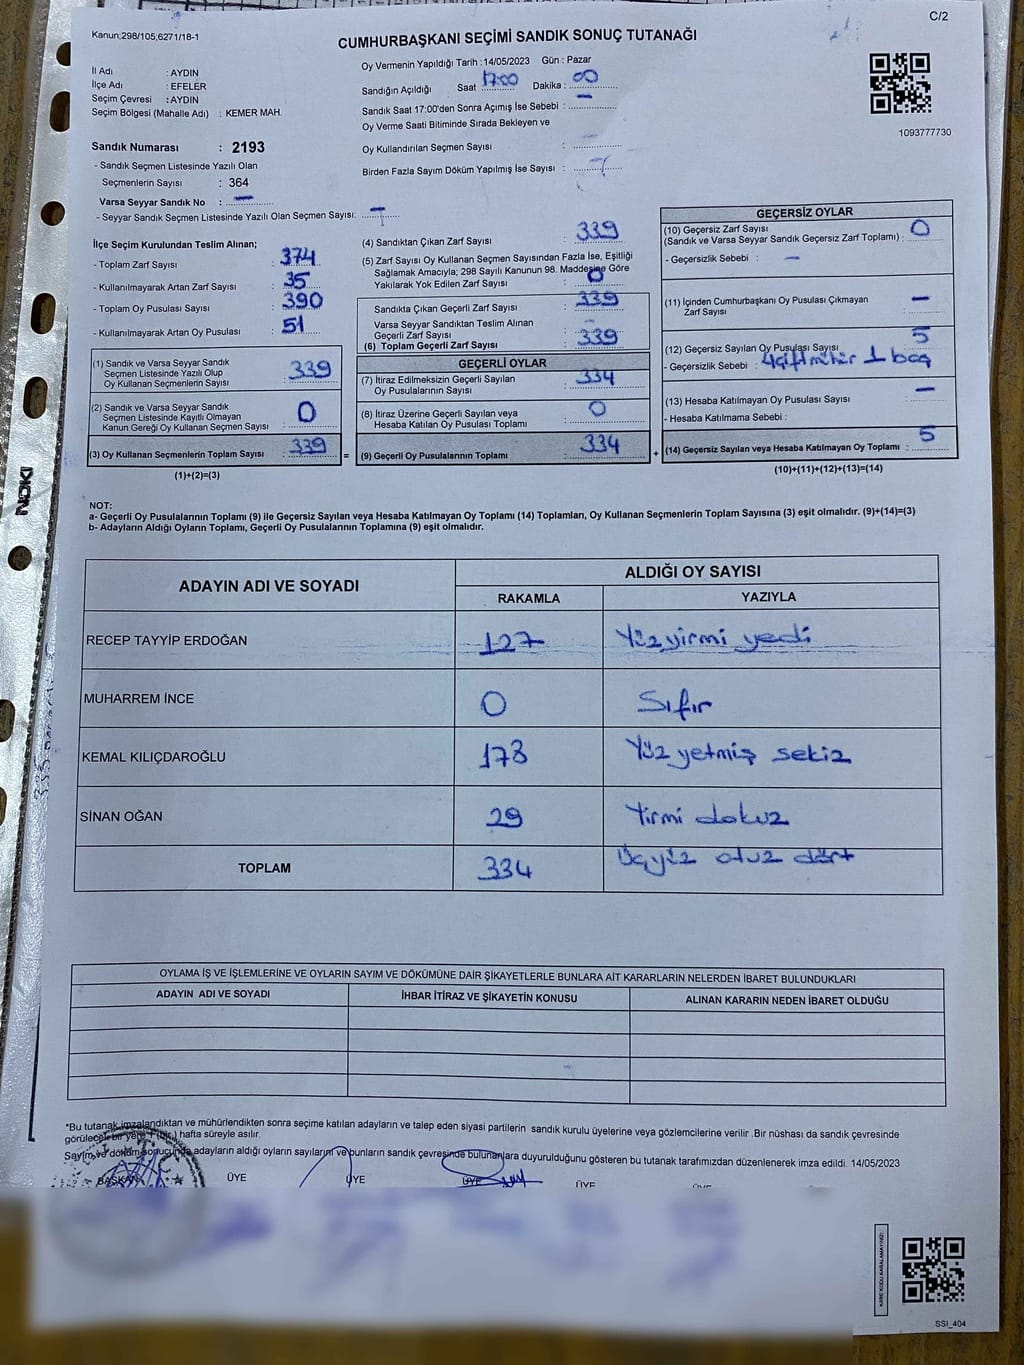 C/2
Kanun;298/105;6271/18-1
CUMHURBAŞKANI SEÇİMİ SANDIK SONUÇ TUTANAĞI
İl Adı : AYDIN
İlçe Adı : EFELER
Seçim Çevresi : AYDIN
Seçim Bölgesi (Mahalle Adı) : KEMER MAH.
Sandık Numarası : 2193
- Sandık Seçmen Listesinde Yazılı Olan
Seçmenlerin Sayısı : 364
Varsa Seyyar Sandık No : —
- Seyyar Sandık Seçmen Listesinde Yazılı Olan Seçmen Sayısı:
Oy Vermenin Yapıldığı Tarih :14/05/2023 Gün : Pazar
Sandığın Açıldığı Saat 17:00 Dakika : 00
Sandık Saat 17:00'den Sonra Açımış İse Sebebi : —
Oy Verme Saati Bitiminde Sırada Bekleyen ve
Oy Kullandırılan Seçmen Sayısı :
Birden Fazla Sayım Döküm Yapılmış İse Sayısı :
1093777730
İlçe Seçim Kurulundan Teslim Alınan;
- Toplam Zarf Sayısı : 374
- Kullanılmayarak Artan Zarf Sayısı : 35
- Toplam Oy Pusulası Sayısı : 390
- Kullanılmayarak Artan Oy Pusulası : 51
(1) Sandık ve Varsa Seyyar Sandık
Seçmen Listesinde Yazılı Olup
Oy Kullanan Seçmenlerin Sayısı : 339
(2) Sandık ve Varsa Seyyar Sandık
Seçmen Listesinde Kayıtlı Olmayan
Kanun Gereği Oy Kullanan Seçmen Sayısı : 0
(3) Oy Kullanan Seçmenlerin Toplam Sayısı : 339
(1)+(2)=(3)
=
(4) Sandıktan Çıkan Zarf Sayısı : 339
(5) Zarf Sayısı Oy Kullanan Seçmen Sayısından Fazla İse, Eşitliği
Sağlamak Amacıyla; 298 Sayılı Kanunun 98. Maddesine Göre
Yakılarak Yok Edilen Zarf Sayısı : 0
Sandıkta Çıkan Geçerli Zarf Sayısı : 339
Varsa Seyyar Sandıktan Teslim Alınan
Geçerli Zarf Sayısı :
(6) Toplam Geçerli Zarf Sayısı : 339
GEÇERLİ OYLAR
(7) İtiraz Edilmeksizin Geçerli Sayılan
Oy Pusulalarının Sayısı : 334
(8) İtiraz Üzerine Geçerli Sayılan veya
Hesaba Katılan Oy Pusulaları Toplamı : 0
(9) Geçerli Oy Pusulalarının Toplamı : 334
+
GEÇERSİZ OYLAR
(10) Geçersiz Zarf Sayısı
(Sandık ve Varsa Seyyar Sandık Geçersiz Zarf Toplamı) : 0
- Geçersizlik Sebebi : —
(11) İçinden Cumhurbaşkanı Oy Pusulası Çıkmayan
Zarf Sayısı : —
(12) Geçersiz Sayılan Oy Pusulası Sayısı : 5
- Geçersizlik Sebebi : 4 çift mühür 1 boş
(13) Hesaba Katılmayan Oy Pusulası Sayısı : —
- Hesaba Katılmama Sebebi :
(14) Geçersiz Sayılan veya Hesaba Katılmayan Oy Toplamı : 5
(10)+(11)+(12)+(13)=(14)
NOT:
a- Geçerli Oy Pusulalarının Toplamı (9) ile Geçersiz Sayılan veya Hesaba Katılmayan Oy Toplamı (14) Toplamları, Oy Kullanan Seçmenlerin Toplam Sayısına (3) eşit olmalıdır. (9)+(14)=(3)
b- Adayların Aldığı Oyların Toplamı, Geçerli Oy Pusulalarının Toplamına (9) eşit olmalıdır.
ADAYIN ADI VE SOYADI
ALDIĞI OY SAYISI
RAKAMLA YAZIYLA
RECEP TAYYİP ERDOĞAN 127 Yüzyirmi yedi
MUHARREM İNCE 0 Sıfır
KEMAL KILIÇDAROĞLU 178 Yüz yetmiş sekiz
SİNAN OĞAN 29 Yirmi dokuz
TOPLAM 334 Üçyüz otuz dört
OYLAMA İŞ VE İŞLEMLERİNE VE OYLARIN SAYIM VE DÖKÜMÜNE DAİR ŞİKAYETLERLE BUNLARA AİT KARARLARIN NELERDEN İBARET BULUNDUKLARI
ADAYIN ADI VE SOYADI İHBAR İTİRAZ VE ŞİKAYETİN KONUSU ALINAN KARARIN NEDEN İBARET OLDUĞU
*Bu tutanak imzalandıktan ve mühürlendikten sonra seçime katılan adayların ve talep eden siyasi partilerin sandık kurulu üyelerine veya gözlemcilerine verilir .Bir nüshası da sandık çevresinde
görülecek bir yere 1 (bir) hafta süreyle asılır.
Sayım ve döküm sonucunda adayların aldığı oyların sayılarını ve bunların sandık çevresinde bulunanlara duyurulduğunu gösteren bu tutanak tarafımızdan düzenlenerek imza edildi. 14/05/2023
BAŞKAN ÜYE ÜYE ÜYE ÜYE ÜYE
KARE KODU KARALAMAYINIZ!
SSI_404
NOKI